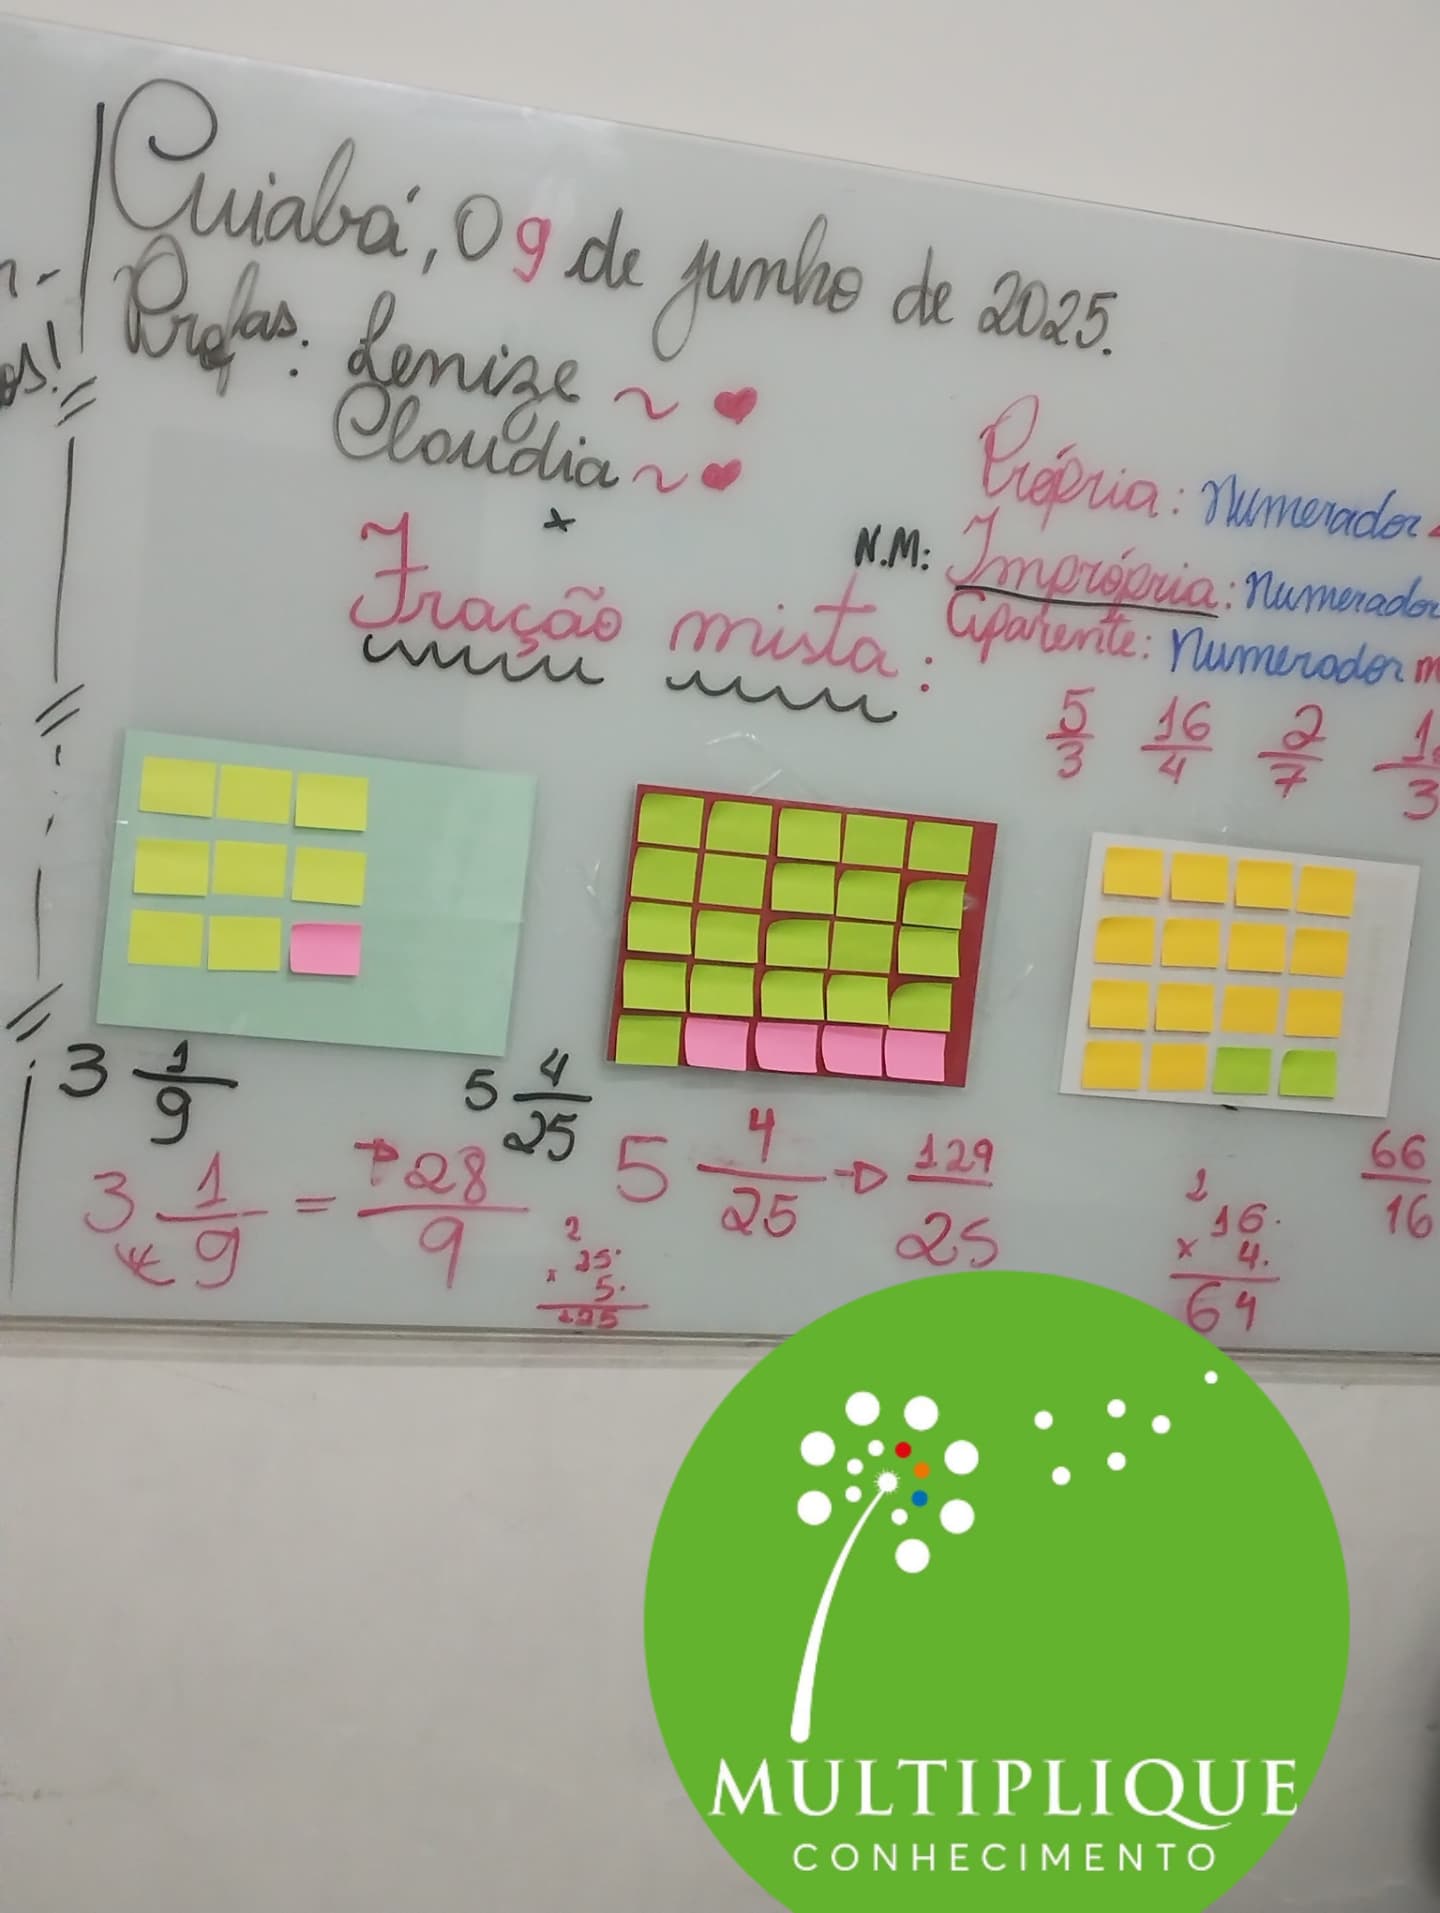 Cuiabá, 09 de junho de 2025.
Profas: Lenize ~ ♥
Claudia ~ ♥
Fração mista:
Própria: Numerador
N.M: Imprópria: Numerador
Aparente: Numerador m
5/3 16/4 2/7
3 1/9
5 4/25
3 1/9 = 28/9
5 4/25 → 129/25
66/16
2
25
x 5
125
2
16
x 4
64
MULTIPLIQUE
CONHECIMENTO